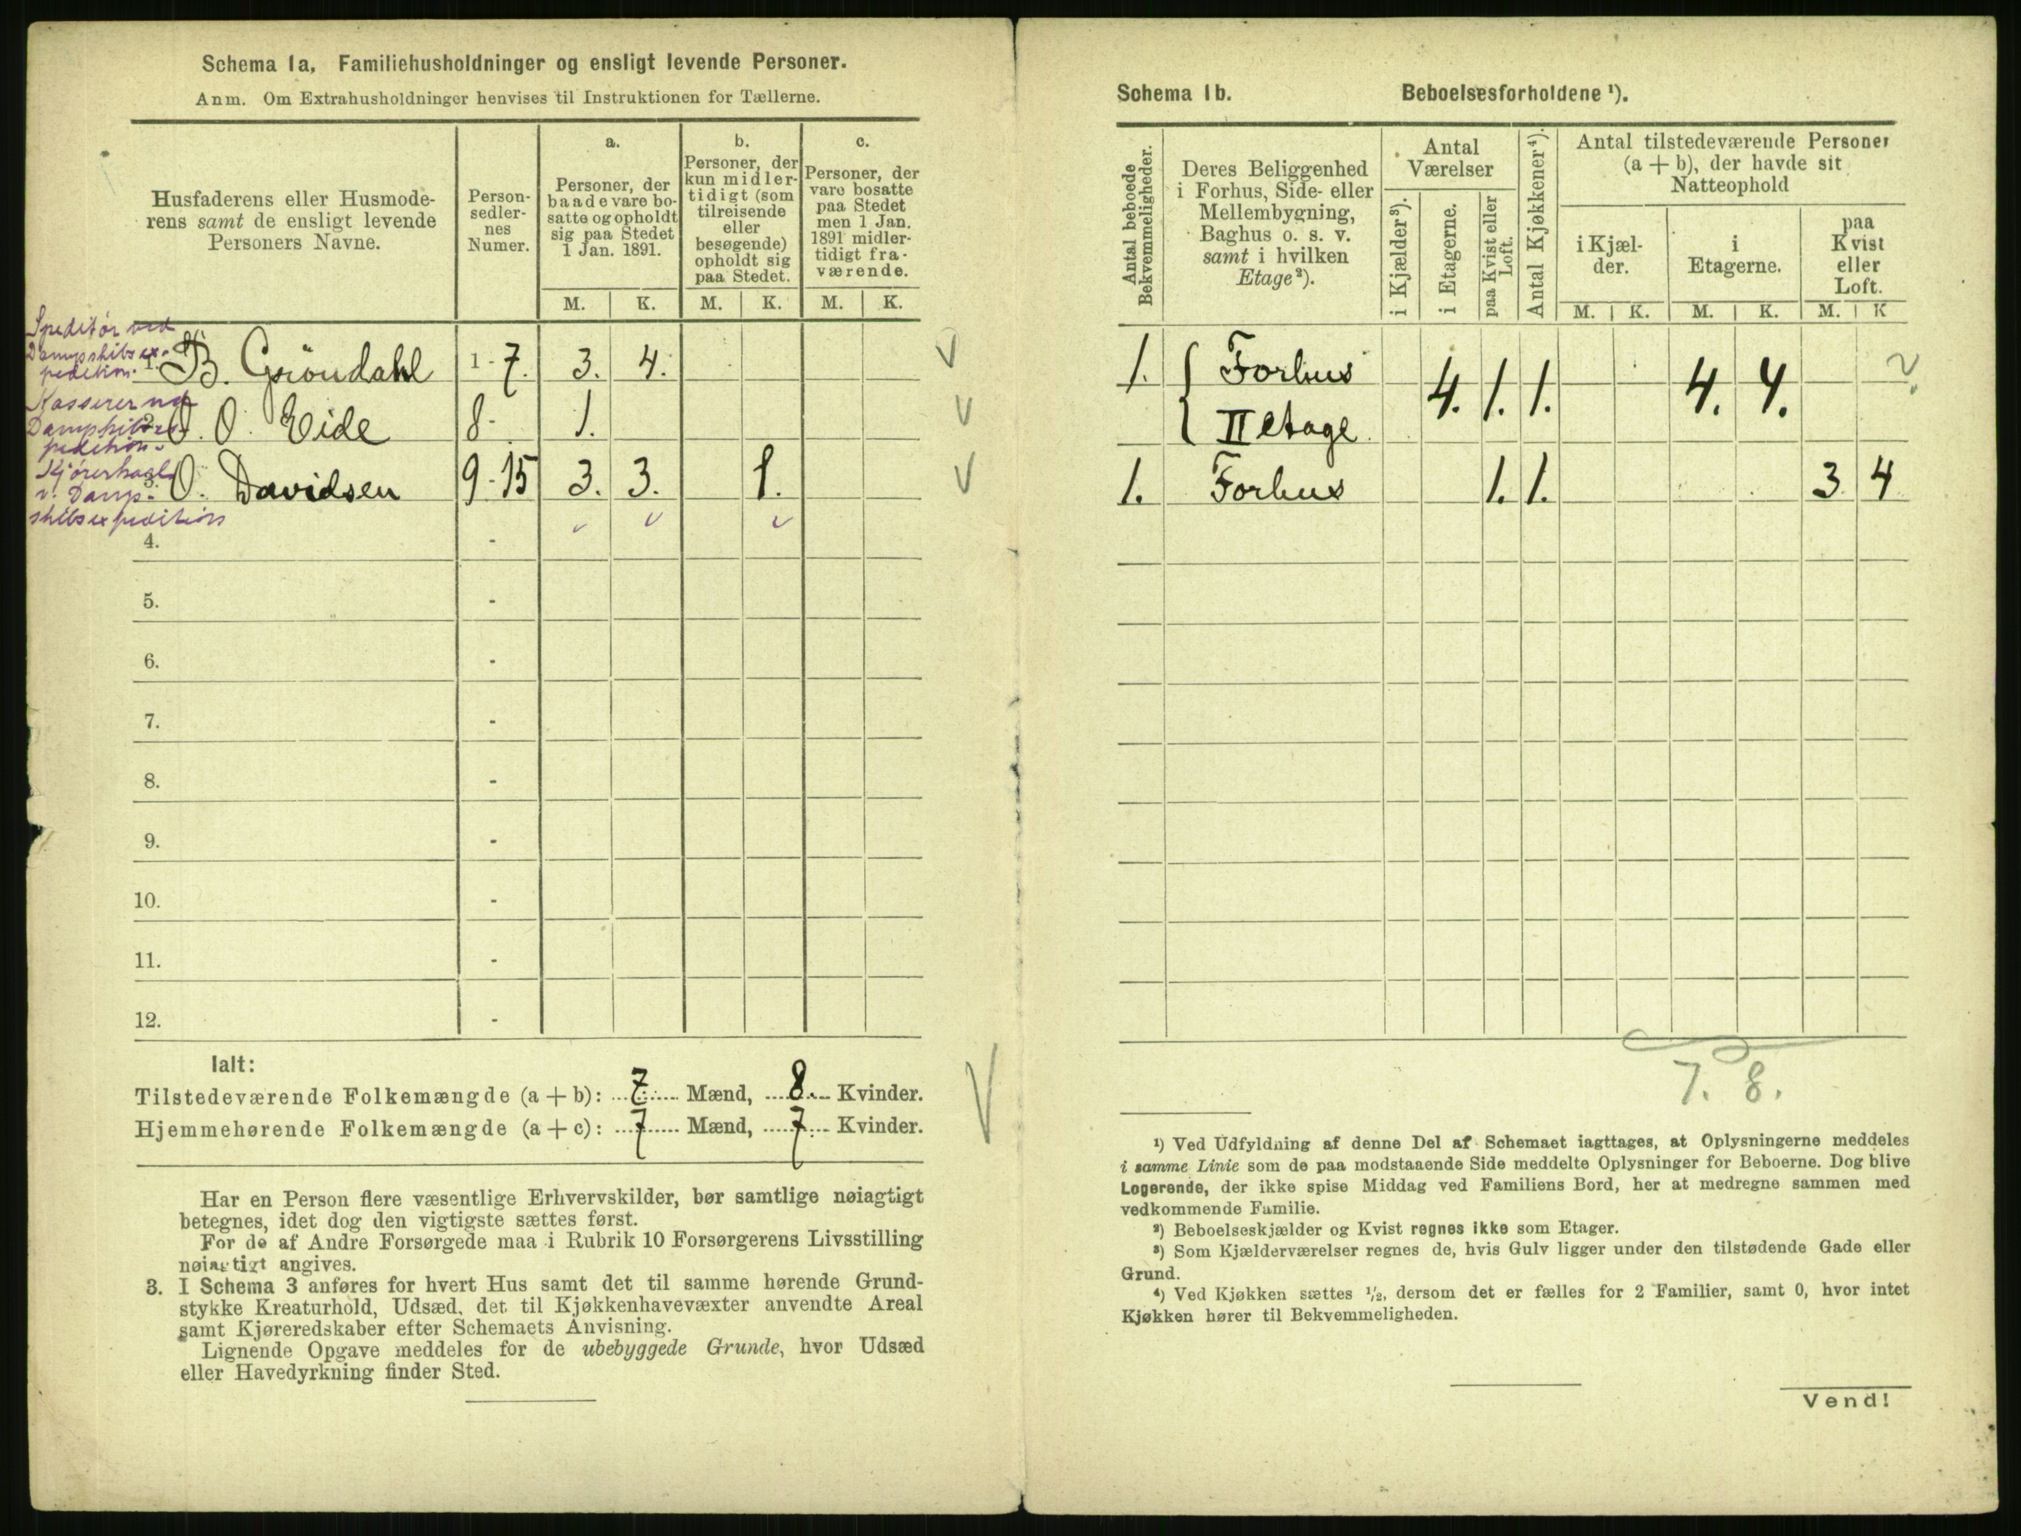 Schema 1a. Familiehusholdninger og ensligt levende Personer.
Anm. Om Extrahusholdninger henvises til Instruktionen for Tællerne.
Husfaderens eller Husmode-
rens samt de ensligt levende
Personers Navne.
Person-
sedler-
nes
Numer.
a.
Personer, der
baade vare bo-
satte og opholdt
sig paa Stedet
1 Jan. 1891.
b.
Personer, der
kun midler-
tidigt (som
tilreisende
eller
besøgende)
opholdt sig
paa Stedet.
c.
Personer, der
vare bosatte
paa Stedet
men 1 Jan.
1891 midler-
tidigt fra-
værende.
M. K. M. K. M. K.
Speditör ved
Dampskibsex-
pedition.
1. B. Gröndahl 1-7. 3. 4.
Kasserer ved
Dampskibsex-
pedition.
2. O. O. Eide 8- 1.
v. Damp-
skibsexpedition
3. O. Davidsen 9-15 3. 3. 1.
4. -
5. -
6. -
7. -
8. -
9. -
10. -
11. -
12. -
Ialt:
Tilstedeværende Folkemængde (a + b): 7 Mænd, 8. Kvinder.
Hjemmehørende Folkemængde (a + c): 7 Mænd, 7 Kvinder.
Har en Person flere væsentlige Erhvervskilder, bør samtlige nøiagtigt
betegnes, idet dog den vigtigste sættes først.
For de af Andre Forsørgede maa i Rubrik 10 Forsørgerens Livsstilling
nøiagtigt angives.
3. I Schema 3 anføres for hvert Hus samt det til samme hørende Grund-
stykke Kreaturhold, Udsæd, det til Kjøkkenhavevæxter anvendte Areal
samt Kjøreredskaber efter Schemaets Anvisning.
Lignende Opgave meddeles for de ubebyggede Grunde, hvor Udsæd
eller Havedyrkning finder Sted.
Schema 1b. Beboelsesforholdene ¹).
Antal beboede
Bekvemmeligheder.
Deres Beliggenhed
i Forhus, Side- eller
Mellembygning,
Baghus o. s. v.
samt i hvilken
Etage²).
Antal
Værelser
i Kjælder³).
i Etagerne.
paa Kvist eller
Loft.
Antal Kjøkkener⁴).
Antal tilstedeværende Personer
(a + b), der havde sit
Natteophold
i Kjæl-
der.
i
Etagerne.
paa
Kvist
eller
Loft.
M. K. M. K. M. K
1. { Forhus 4. 1. 1. 4. 4.
II etage
1. Forhus 1. 1. 3 4
7. 8.
¹) Ved Udfyldning af denne Del af Schemaet iagttages, at Oplysningerne meddeles
i samme Linie som de paa modstaaende Side meddelte Oplysninger for Beboerne. Dog blive
Logerende, der ikke spise Middag ved Familiens Bord, her at medregne sammen med
vedkommende Familie.
²) Beboelseskjælder og Kvist regnes ikke som Etager.
³) Som Kjælderværelser regnes de, hvis Gulv ligger under den tilstødende Gade eller
Grund.
⁴) Ved Kjøkken sættes ½, dersom det er fælles for 2 Familier, samt 0, hvor intet
Kjøkken hører til Bekvemmeligheden.
Vend!